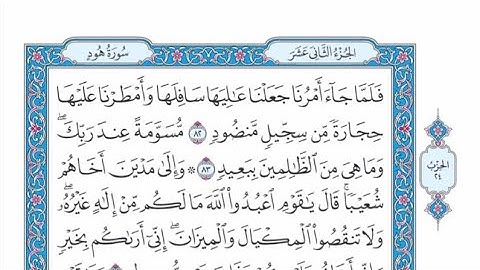 الجُزْءُ الثَّانِي عَشَرَ
سُورَةُ هُودٍ
فَلَمَّا جَآءَ أَمْرُنَا جَعَلْنَا عَٰلِيَهَا سَافِلَهَا وَأَمْطَرْنَا عَلَيْهَا
حِجَارَةً مِّن سِجِّيلٍ مَّنضُودٍ ٨٢ مُّسَوَّمَةً عِندَ رَبِّكَۖ
وَمَا هِيَ مِنَ ٱلظَّٰلِمِينَ بِبَعِيدٍ ٨٣ ۞ وَإِلَىٰ مَدْيَنَ أَخَاهُمْ
شُعَيْبٗاۚ قَالَ يَٰقَوْمِ ٱعْبُدُوا۟ ٱللَّهَ مَا لَكُم مِّنْ إِلَٰهٍ غَيْرُهُۥۖ
وَلَا تَنقُصُوا۟ ٱلْمِكْيَالَ وَٱلْمِيزَانَۖ إِنِّيٓ أَرَىٰكُم بِخَيْرٍ
الحِزْبُ
٢٤